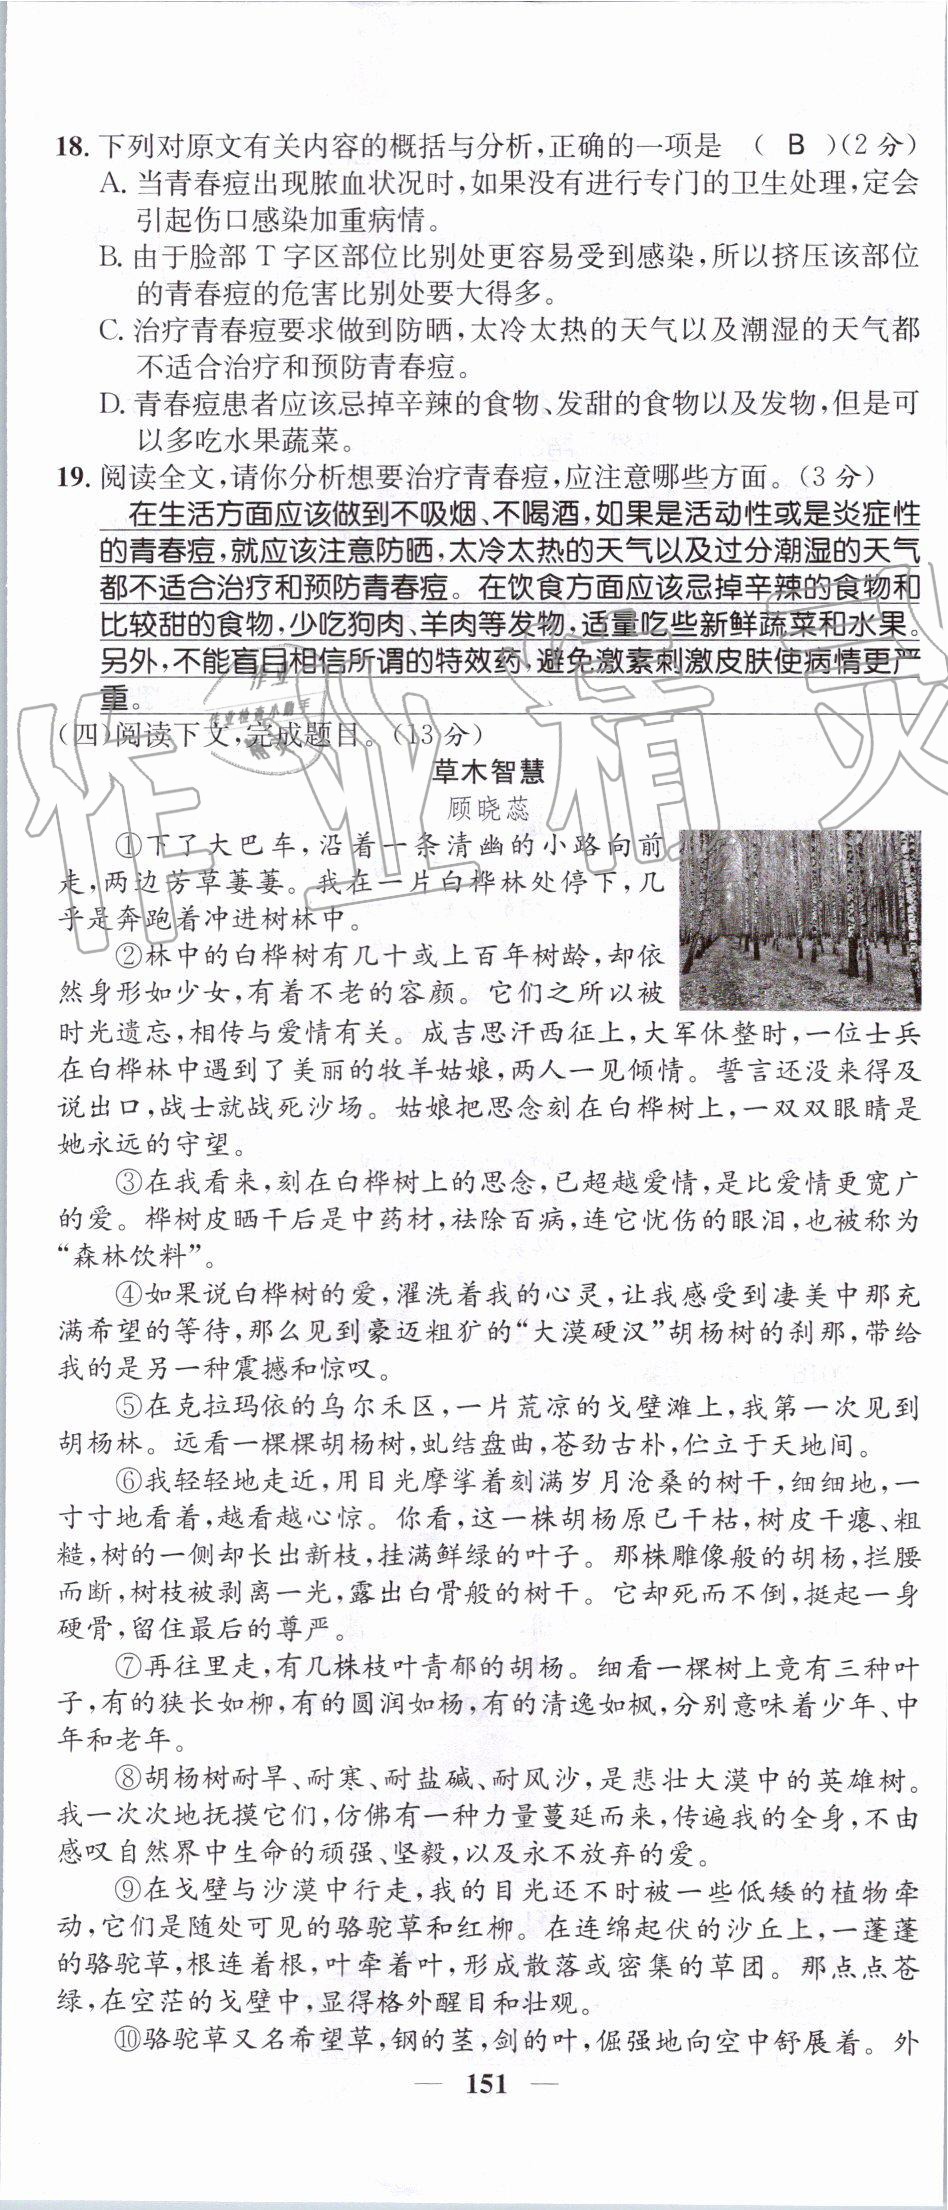 18. 下列对原文有关内容的概括与分析,正确的一项是 ( B )(2分)
A. 当青春痘出现脓血状况时,如果没有进行专门的卫生处理,定会
引起伤口感染加重病情。
B. 由于脸部T字区部位比别处更容易受到感染,所以挤压该部位
的青春痘的危害比别处要大得多。
C. 治疗青春痘要求做到防晒,太冷太热的天气以及潮湿的天气都
不适合治疗和预防青春痘。
D. 青春痘患者应该忌掉辛辣的食物、发甜的食物以及发物,但是可
以多吃水果蔬菜。
19. 阅读全文,请你分析想要治疗青春痘,应注意哪些方面。(3分)
在生活方面应该做到不吸烟、不喝酒,如果是活动性或是炎症性
的青春痘,就应该注意防晒,太冷太热的天气以及过分潮湿的天气
都不适合治疗和预防青春痘。在饮食方面应该忌掉辛辣的食物和
比较甜的食物,少吃狗肉、羊肉等发物,适量吃些新鲜蔬菜和水果。
另外,不能盲目相信所谓的特效药,避免激素刺激皮肤使病情更严
重。
(四)阅读下文,完成题目。(13分)
草木智慧
顾晓蕊
①下了大巴车,沿着一条清幽的小路向前
走,两边芳草萋萋。我在一片白桦林处停下,几
乎是奔跑着冲进树林中。
②林中的白桦树有几十或上百年树龄,却依
然身形如少女,有着不老的容颜。它们之所以被
时光遗忘,相传与爱情有关。成吉思汗西征上,大军休整时,一位士兵
在白桦林中遇到了美丽的牧羊姑娘,两人一见倾情。誓言还没来得及
说出口,战士就战死沙场。姑娘把思念刻在白桦树上,一双双眼睛是
她永远的守望。
③在我看来,刻在白桦树上的思念,已超越爱情,是比爱情更宽广
的爱。桦树皮晒干后是中药材,祛除百病,连它忧伤的眼泪,也被称为
“森林饮料”。
④如果说白桦树的爱,濯洗着我的心灵,让我感受到凄美中那充
满希望的等待,那么见到豪迈粗犷的“大漠硬汉”胡杨树的刹那,带给
我的是另一种震撼和惊叹。
⑤在克拉玛依的乌尔禾区,一片荒凉的戈壁滩上,我第一次见到
胡杨林。远看一棵棵胡杨树,虬结盘曲,苍劲古朴,伫立于天地间。
⑥我轻轻地走近,用目光摩挲着刻满岁月沧桑的树干,细细地,一
寸寸地看着,越看越心惊。你看,这一株胡杨原已干枯,树皮干瘪、粗
糙,树的一侧却长出新枝,挂满鲜绿的叶子。那株雕像般的胡杨,拦腰
而断,树枝被剥离一光,露出白骨般的树干。它却死而不倒,挺起一身
硬骨,留住最后的尊严。
⑦再往里走,有几株枝叶青郁的胡杨。细看一棵树上竟有三种叶
子,有的狭长如柳,有的圆润如杨,有的清逸如枫,分别意味着少年、中
年和老年。
⑧胡杨树耐旱、耐寒、耐盐碱、耐风沙,是悲壮大漠中的英雄树。
我一次次地抚摸它们,仿佛有一种力量蔓延而来,传遍我的全身,不由
感叹自然界中生命的顽强、坚毅,以及永不放弃的爱。
⑨在戈壁与沙漠中行走,我的目光还不时被一些低矮的植物牵
动,它们是随处可见的骆驼草和红柳。在连绵起伏的沙丘上,一蓬蓬
的骆驼草,根连着根,叶牵着叶,形成散落或密集的草团。那点点苍
绿,在空茫的戈壁中,显得格外醒目和壮观。
⑩骆驼草又名希望草,钢的茎,剑的叶,倔强地向空中舒展着。外
— 151 —
作业精灵
作业
作业检查小助手
精灵